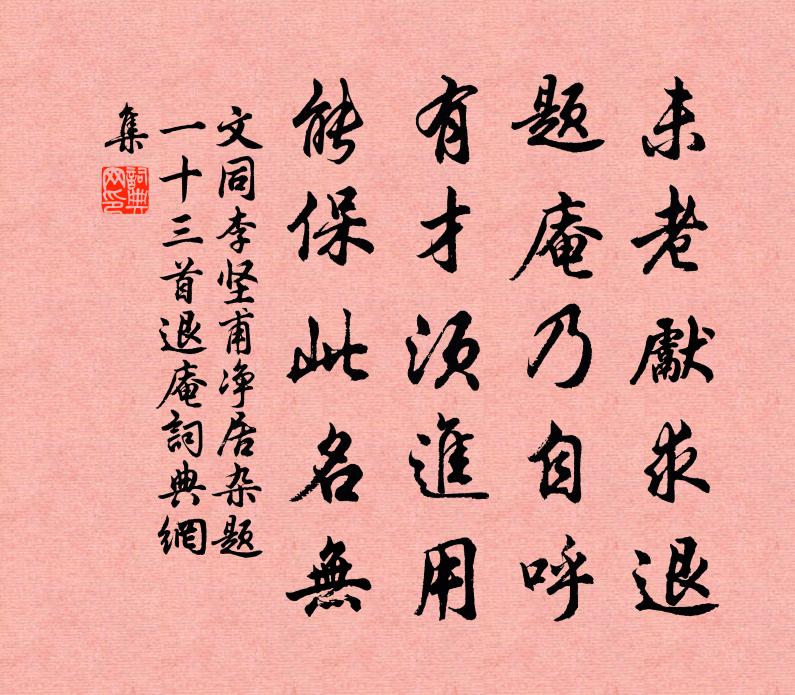 未老獻求退
題庵乃自呼
有才須進用
能保此名無
文同李坚甫净居杂题
一十三首退庵詞典網
集
詞典網印